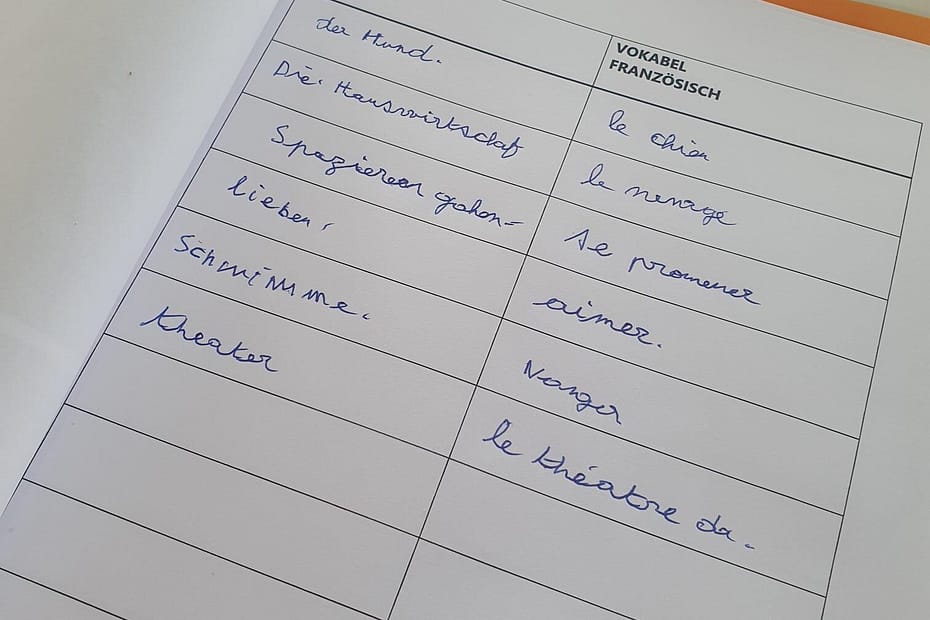 VOKABEL
FRANZÖSISCH
der Hund.
le chien
Die Hauswirkschaf
le menage
Spazieren gehen
se promener
lieben,
aimer.
Schwimme.
Nanger
theater
le théatre da.